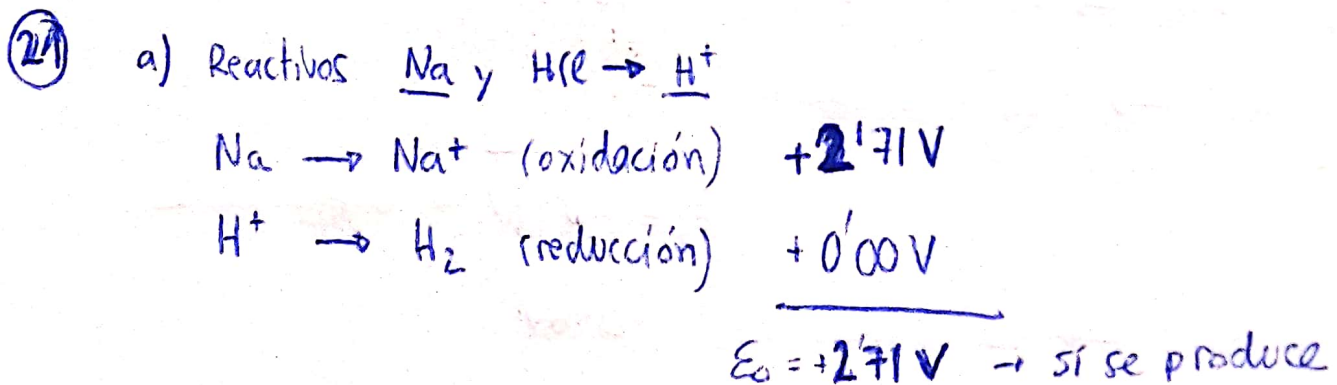 21 a) Reactivos Na y HCl → H⁺
Na → Na⁺ (oxidación) +2'71 V
H⁺ → H₂ (reducción) +0'00 V
ε₀ = +2'71 V → sí se produce